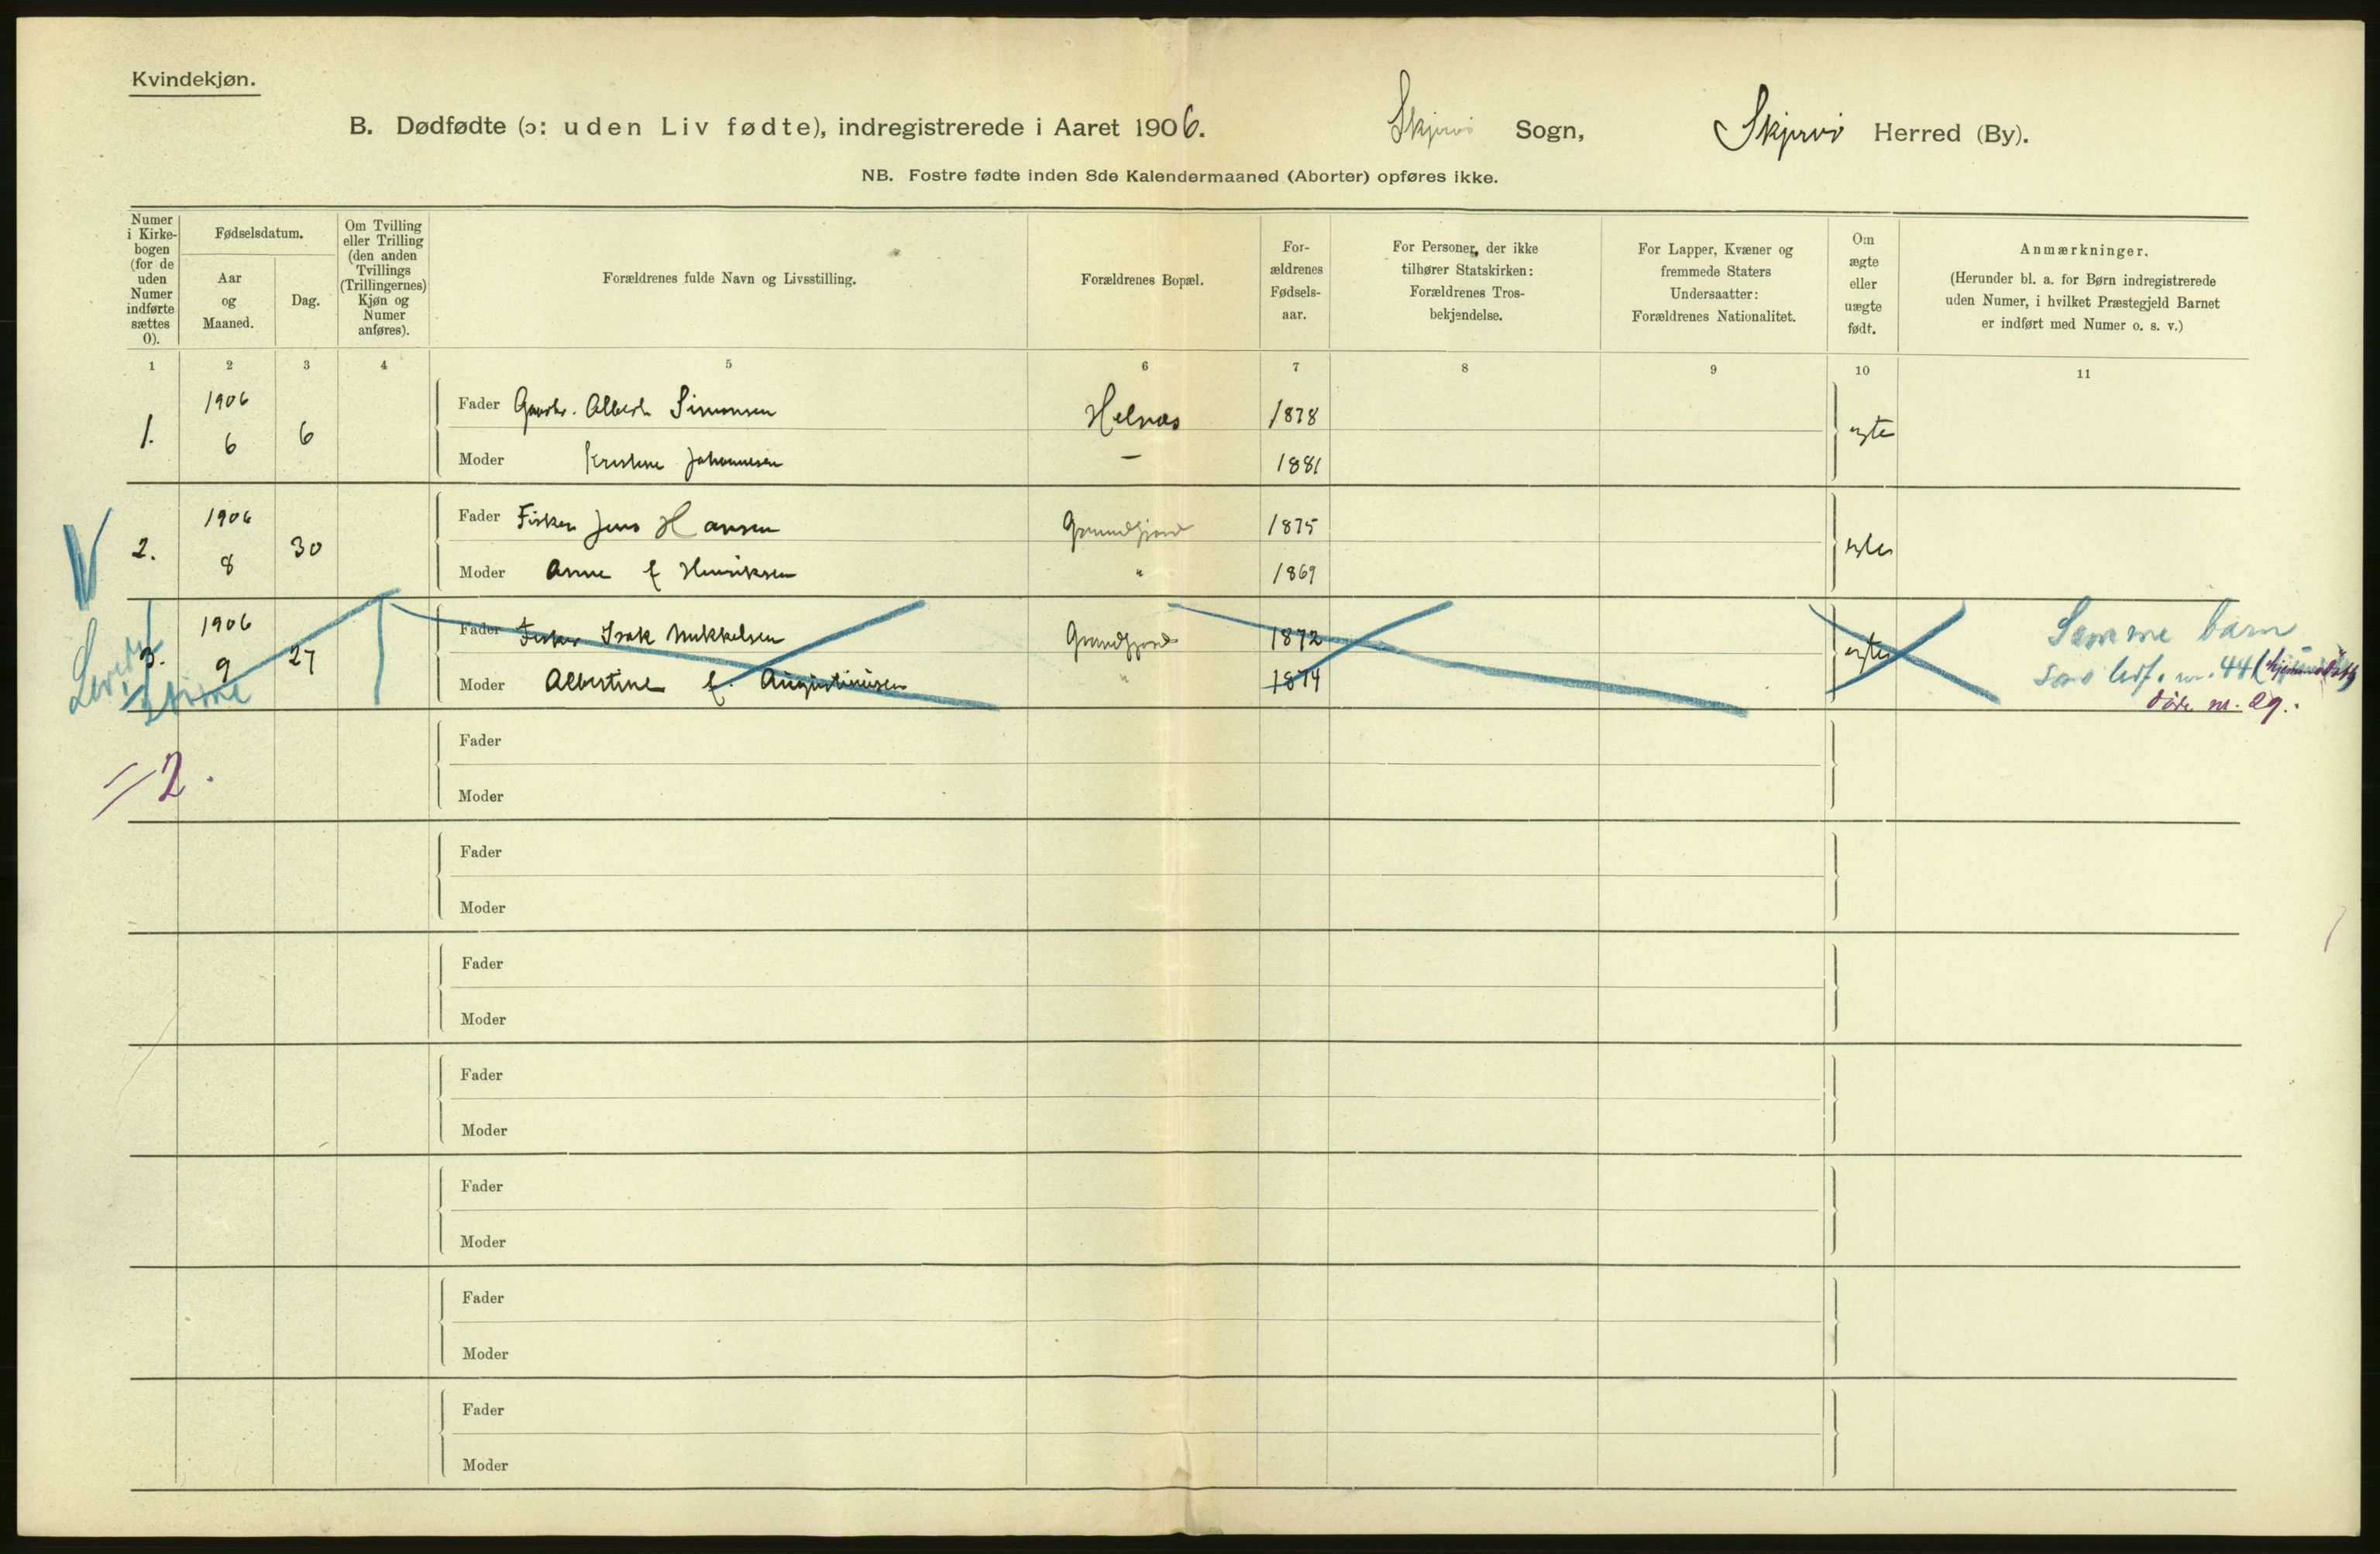 Kvindekjøn.
B. Dødfødte (ɔ: uden Liv fødte), indregistrerede i Aaret 1906.
Skjervö Sogn,
Skjervö Herred (By).
NB. Fostre fødte inden 8de Kalendermaaned (Aborter) opføres ikke.
Numer
i Kirke-
bogen
(for de
uden
Numer
indførte
sættes
0).
Fødselsdatum.
Aar
og
Maaned.
Dag.
Om Tvilling
eller Trilling
(den anden
Tvillings
(Trillingernes)
Kjøn og
Numer
anføres).
Forældrenes fulde Navn og Livsstilling.
Forældrenes Bopæl.
For-
ældrenes
Fødsels-
aar.
For Personer, der ikke
tilhører Statskirken:
Forældrenes Tros-
bekjendelse.
For Lapper, Kvæner og
fremmede Staters
Undersaatter:
Forældrenes Nationalitet.
Om
ægte
eller
uægte
født.
Anmærkninger.
(Herunder bl. a. for Børn indregistrerede
uden Numer, i hvilket Præstegjeld Barnet
er indført med Numer o. s. v.)
1 2 3 4 5 6 7 8 9 10 11
1. 1906 6 6
Fader Albert Simonsen Helnæs 1878 ægte
Moder Kristine Johannesen — 1881
2. 1906 8 30
Fader Fisker Jens Hansen Grundfjord 1875 ægte
Moder Anne f Henriksen " 1869
3. 1906 9 27
Fader Fisker Isak Mikkelsen Grundfjord 1872 ægte
Moder Albertine f. Augustinusen " 1874
Levede
Samme barn
som levf. nr. 44
døde nr. 29.
= 2.
Fader
Moder
Fader
Moder
Fader
Moder
Fader
Moder
Fader
Moder
Fader
Moder
Fader
Moder